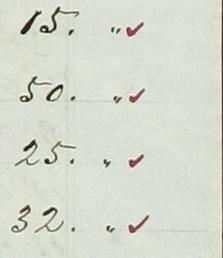 15. " ✓
50. " ✓
25. " ✓
32. " ✓